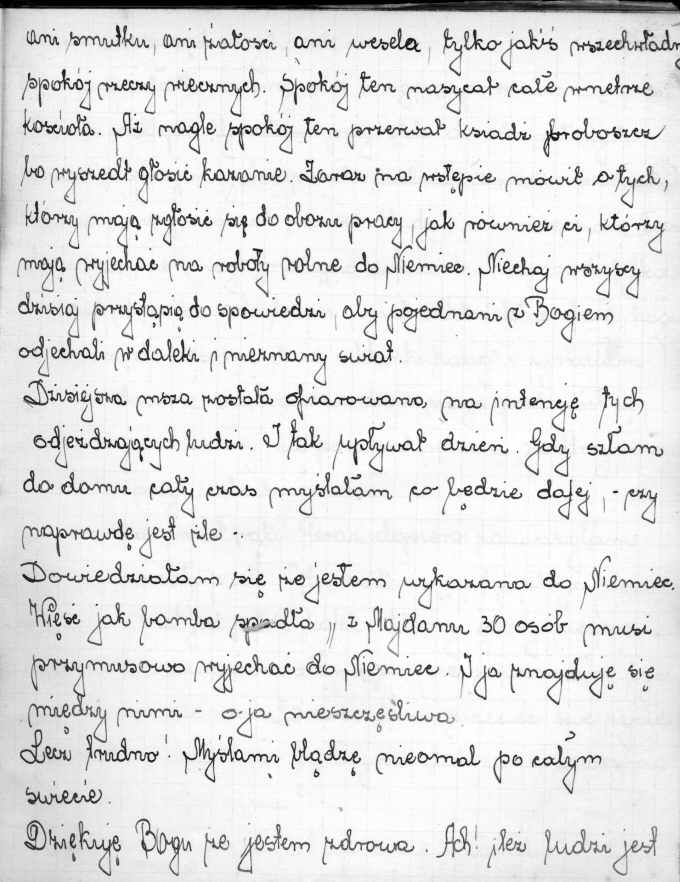 ani smutku, ani żałości, ani wesela, tylko jakiś wszechwładny
spokój rzeczy wiecznych. Spokój ten nasycał całe wnętrze
kościoła. Aż nagle spokój ten przerwał ksiądz proboszcz
bo wyszedł głosić kazanie. Zaraz na wstępie mówił o tych,
którzy mają zgłosić się do obozu pracy, jak również ci, którzy
mają wyjechać na roboty rolne do Niemiec. Niechaj wszyscy
dzisiaj przystąpią do spowiedzi, aby pojednani z Bogiem
odjechali w daleki i nieznany świat.
Dzisiejsza msza została ofiarowana, na intencję tych
odjeżdzających ludzi. I tak upływał dzień. Gdy szłam
do domu cały czas myślałam co będzie dalej, - czy
naprawdę jest źle -
Dowiedziałam się że jestem wykazana do Niemiec.
Więść jak bomba spadła „ z Majdanu 30 osób musi
przymusowo wyjechać do Niemiec. I ja znajduję się
między nimi - o ja nieszczęśliwa.
Lecz trudno! Myślami błądzę nieomal po całym
świecie.
Dziękuję Bogu że jestem zdrowa. Ach! ileż ludzi jest